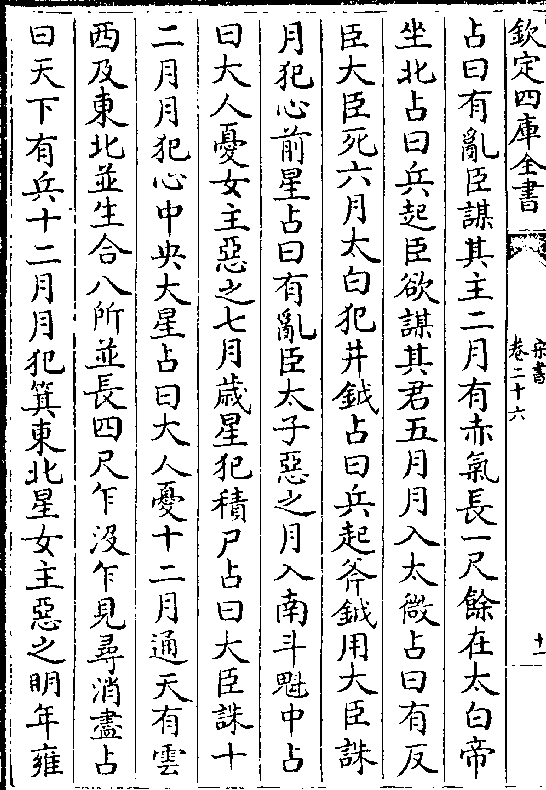 欽定四庫全書
宋書
卷二十六
十一
占曰有亂臣謀其主二月有赤氣長一尺餘在太白帝
坐北占曰兵起臣欲謀其君五月月入太微占曰有反
臣大臣死六月太白犯井鉞占曰兵起斧鉞用大臣誅
月犯心前星占曰有亂臣太子惡之月入南斗魁中占
曰大人憂女主惡之七月歲星犯積尸占曰大臣誅十
二月月犯心中央大星占曰大人憂十二月通天有雲
西及東北並生合八所並長四尺乍沒乍見尋消盡占
曰天下有兵十二月月犯箕東北星女主惡之明年雍